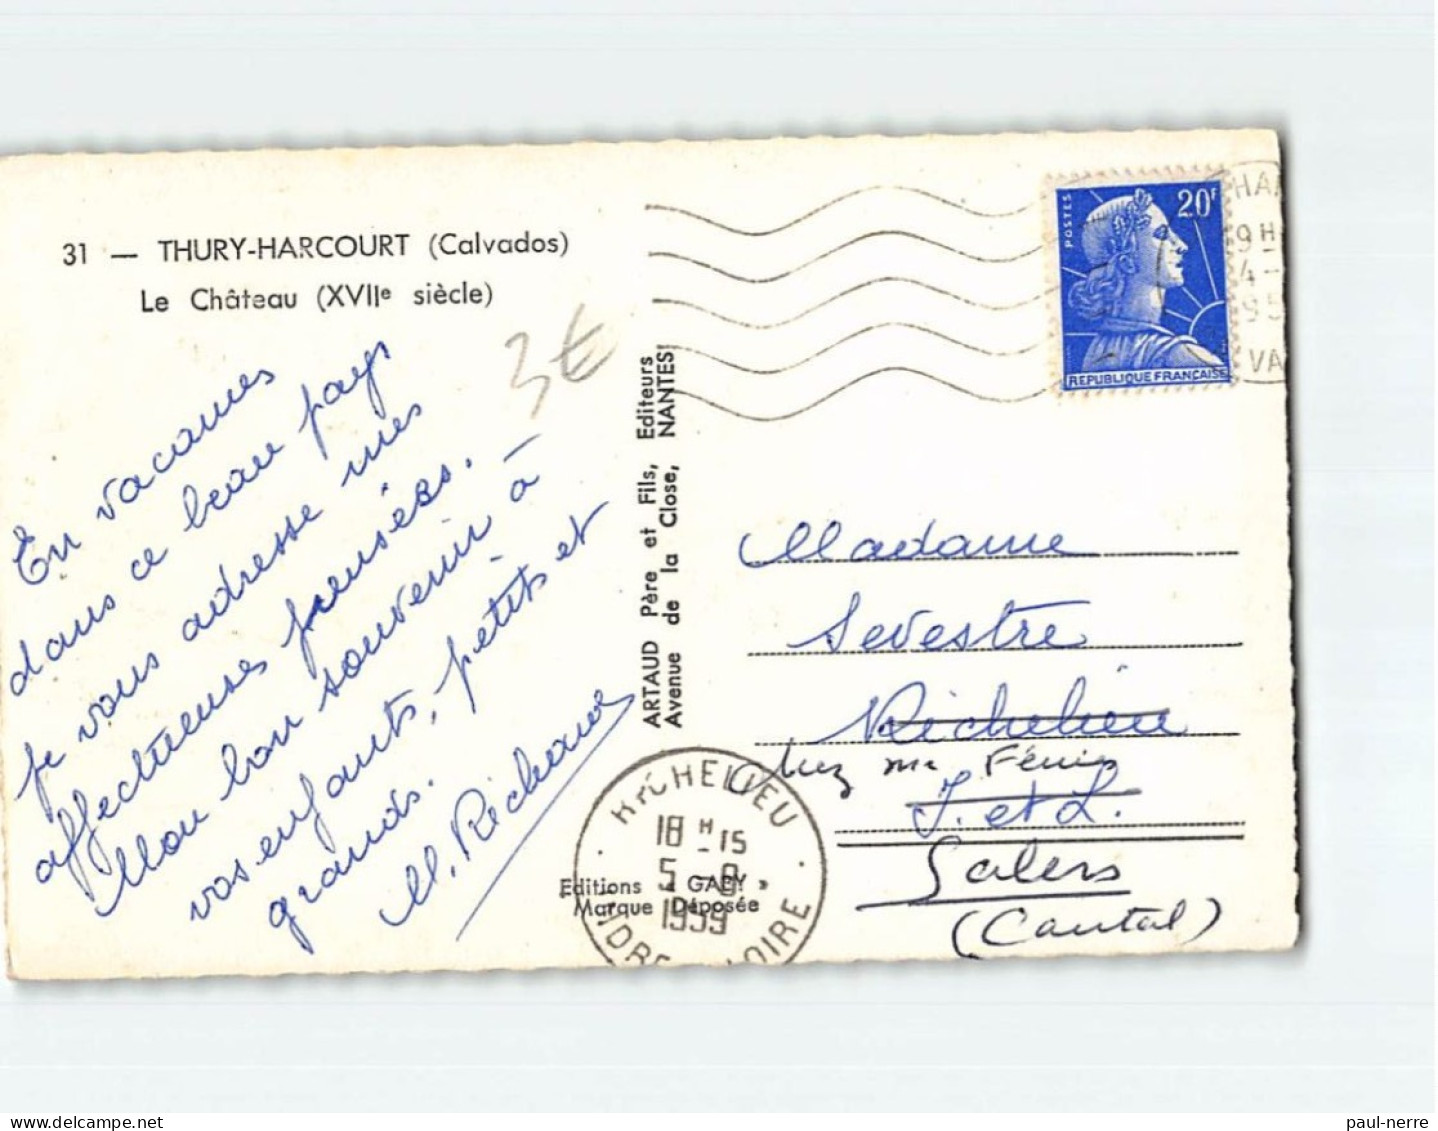 31 — THURY-HARCOURT (Calvados)
Le Château (XVIIe siècle)
3€
En vacances
dans ce beau pays
je vous adresse mes
affectueuses pensées. —
Mon bon souvenir à
vos enfants, petits et
grands.
M. Richard
ARTAUD Père et Fils, Editeurs
Avenue de la Close, NANTES
Editions « GABY »
Marque Déposée
POSTES
20F
REPUBLIQUE FRANÇAISE
HAR
9H
4-
95
VA
Madame
Sevestre
Richelieu
Chez Me
I. et L.
Salers
(Cantal)
RICHELIEU
18H-15
5-8
1959
INDRE LOIRE
paul-nerre